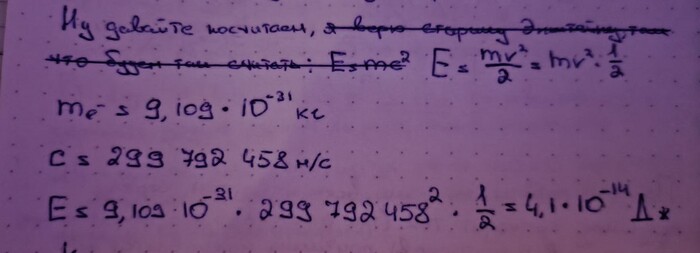 Ну давайте посчитаем, я верю старшему Эйнштейну, так
что будем так считать: E = mc² E = mv²/2 = mv² · 1/2
me⁻ = 9,109 · 10⁻³¹ кг
c = 299 792 458 м/с
E = 9,109 · 10⁻³¹ · 299 792 458² · 1/2 = 4,1 · 10⁻¹⁴ Дж